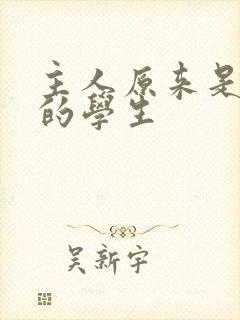 主人原来是
的學生
吴新宇